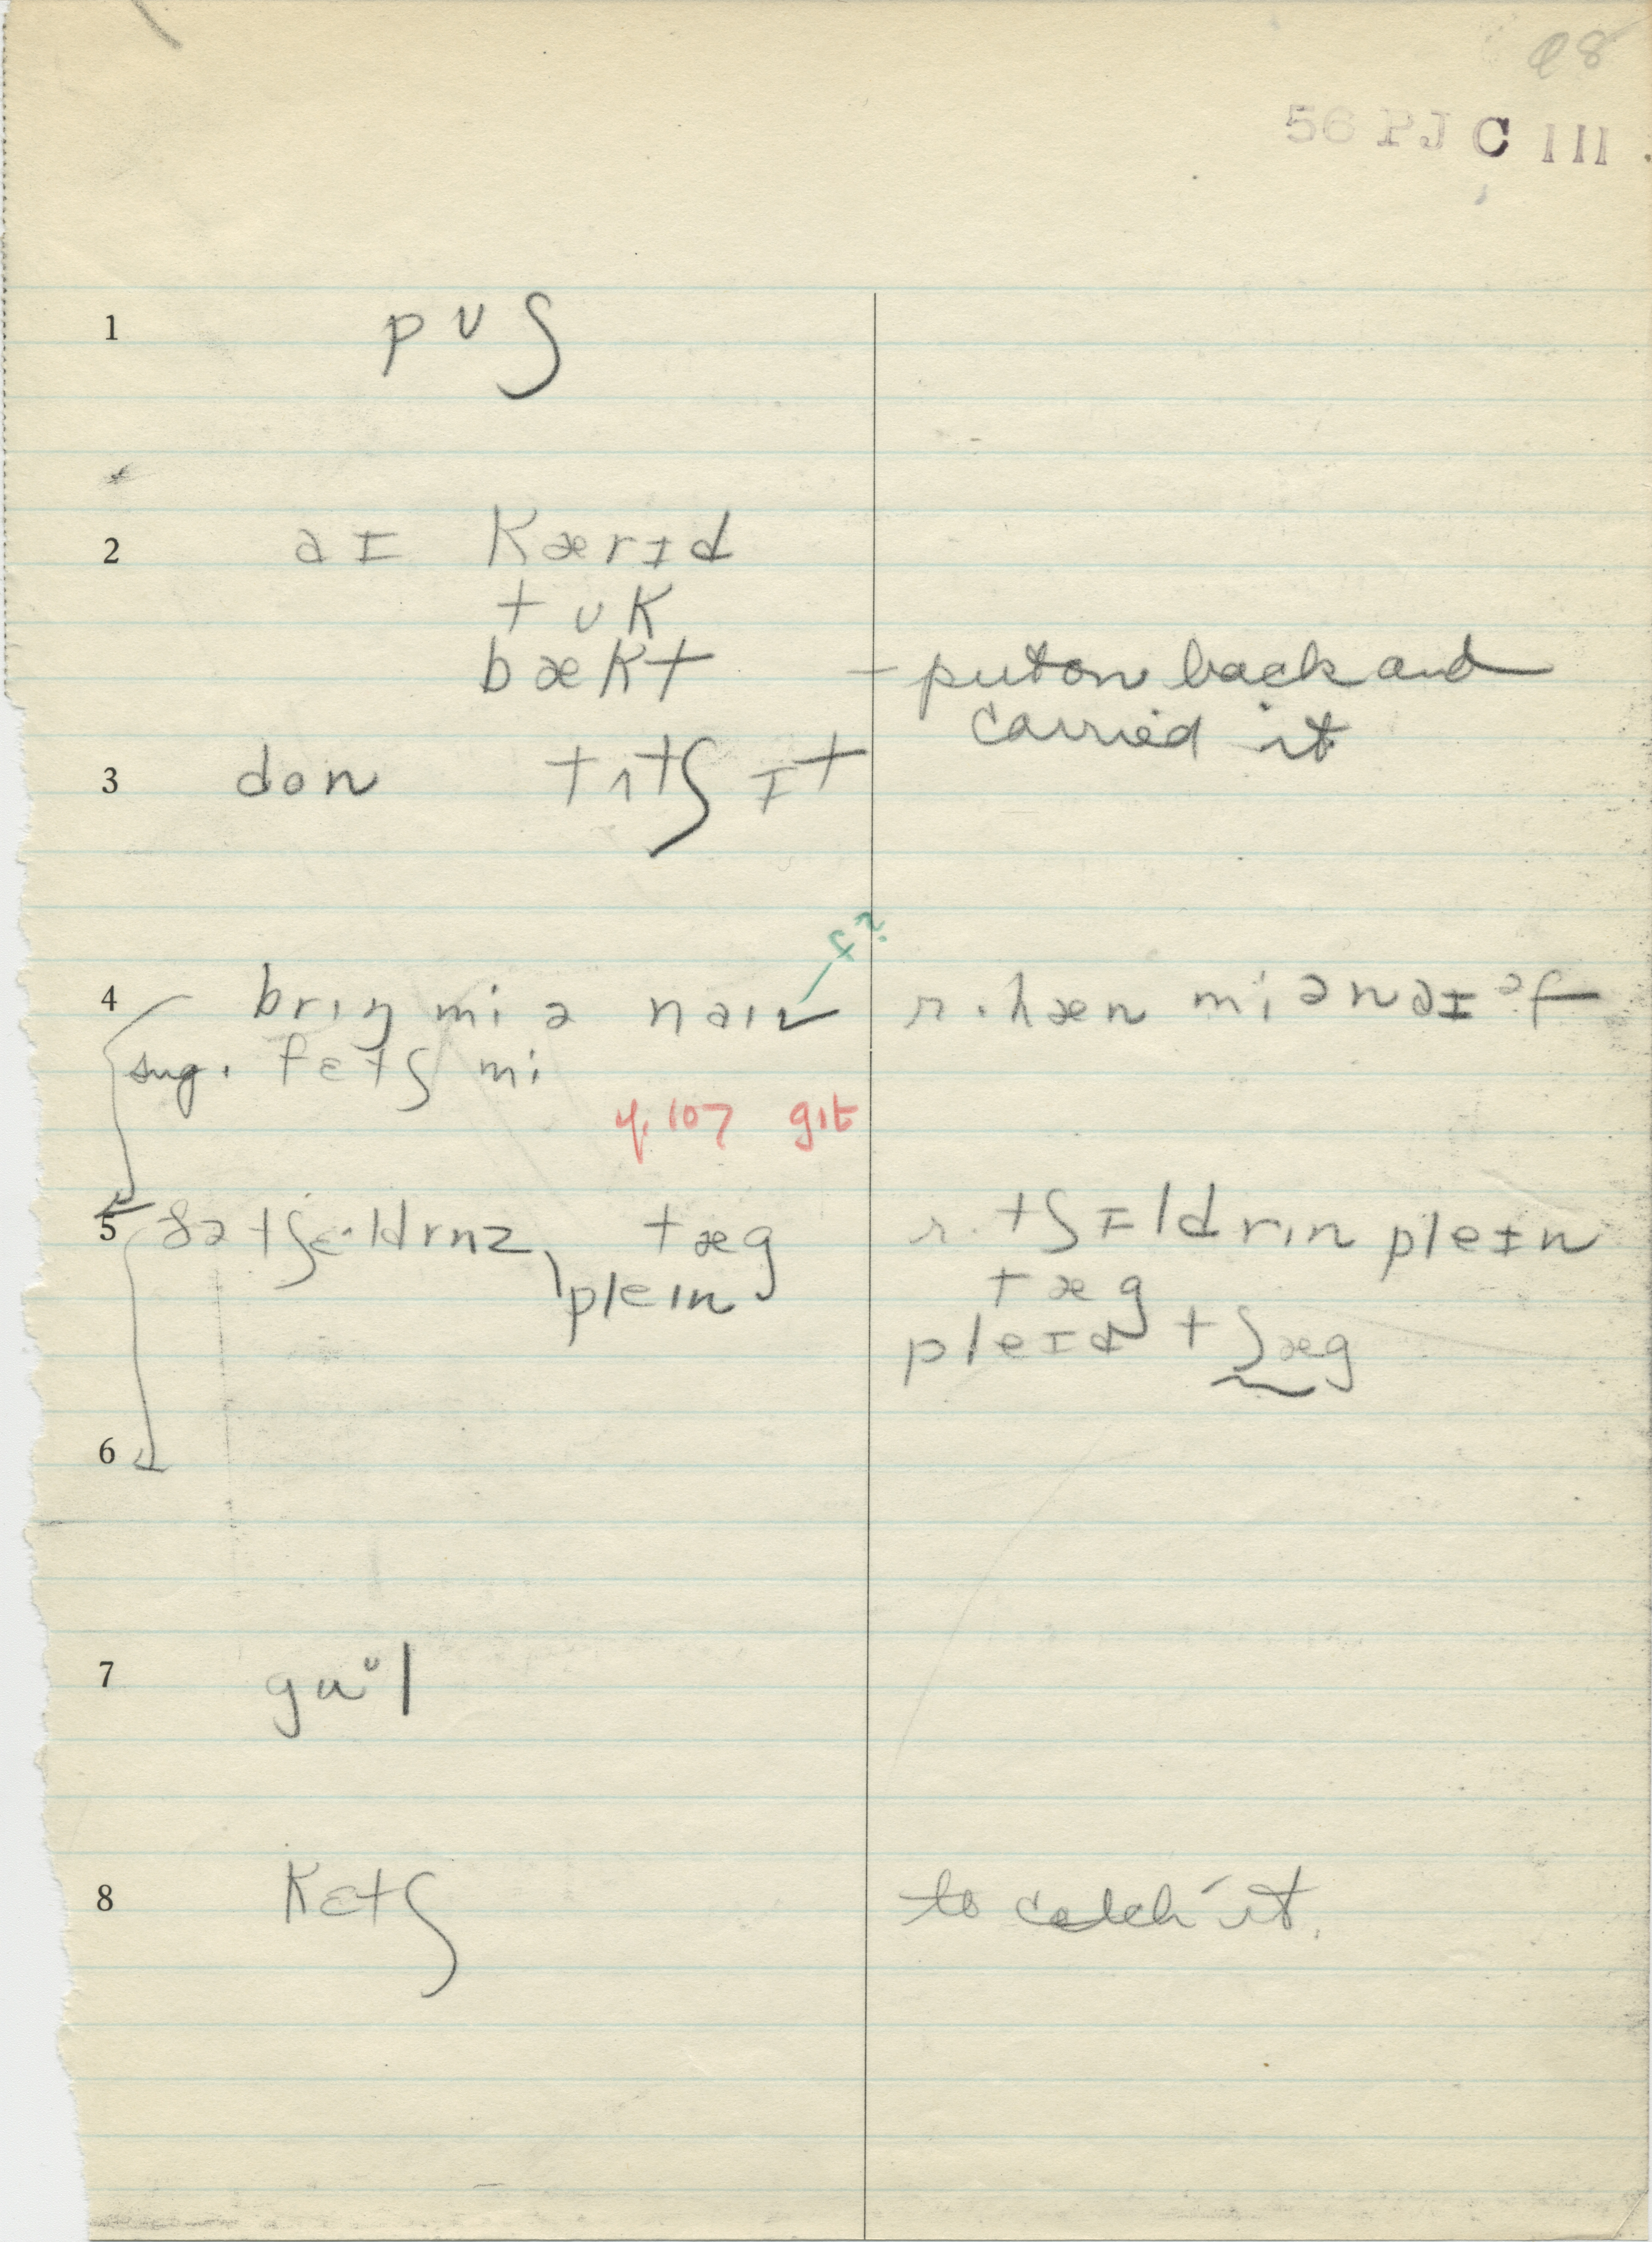 98
56 PJ C 111
1 pʊʃ
2 aɪ kærɪd
tʊk
bækt – put on back and
carried it
3 don tʌtʃ ɪt
f?
4 brɪŋ mi ə naɪv r. hæn mi ə naɪəf
sug. fɛtʃ mi
cf. 107 gɪt
5 ðə tʃɛ·ldrnz, tæg r. tʃɪldrɪn pleɪn
pleɪn tæg
pleɪd tʃæg
6
7 gɑᶷl
8 kɛtʃ to catch it.